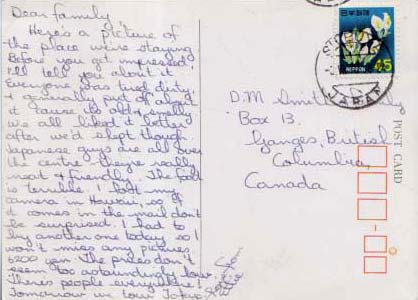 Dear Family
Here's a picture of
the place we're staying
Before you get impressed
I'll tell you about it
Everyone was tired, dirty,
& generally put of about
it 'cause its old & smelly
we all liked it better
after we'd slept though
Japanese guys are all over
the centre they're really
neat & friendly. The food
is terrible. I lost my
camera in Hawaii, so if
it comes in the mail don't
be surprised. I had to
buy another one today so I
won't miss any pictures
6200 yen. The prices don't
seem too astoundingly low
There's people everywhere!
Tomorrow we tour Tokyo
Love
日本郵便
NIPPON 45
JAPAN
D.M Smith Family
Box 13.
Ganges, British
Columbia,
Canada
POST CARD